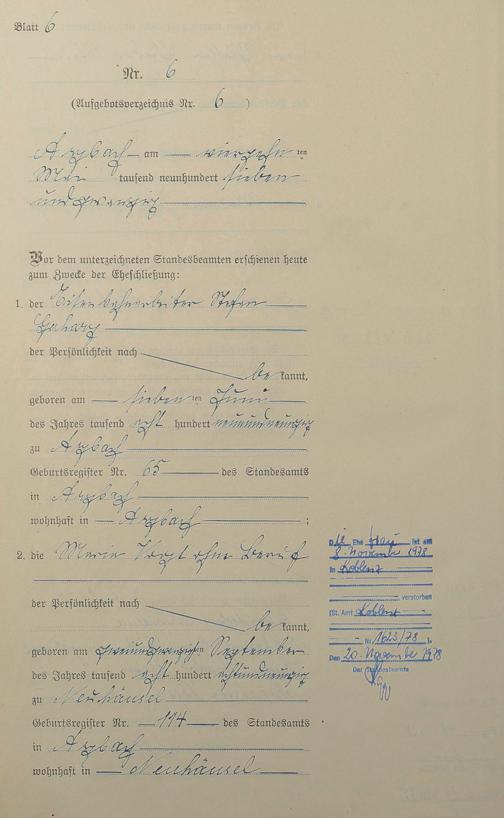 Blatt 6
Nr. 6
(Aufgebotsverzeichnis Nr. 6 )
Arzbach am vierzehn ten
Mai tausend neunhundert sieben
undzwanzig
Vor dem unterzeichneten Standesbeamten erschienen heute
zum Zwecke der Eheschließung:
1. der Eisenbahnarbeiter Stefan
der Persönlichkeit nach
be kannt,
geboren am sieben ten Juni
des Jahres tausend acht hundert neunundneunzig
zu Arzbach
Geburtsregister Nr. 65 des Standesamts
in Arzbach
wohnhaft in Arzbach ;
2. die Maria Vogt ohne Beruf
der Persönlichkeit nach
be kannt,
geboren am zweiundzwanzigsten September
des Jahres tausend acht hundert achtundneunzig
zu Neuhäusel
Geburtsregister Nr. 114 des Standesamts
in Arzbach
wohnhaft in Neuhäusel
Die Ehefrau ist am
8. November 1978
in Koblenz
verstorben
(St. Amt Koblenz
Nr. 1623/78 ).
Den 20. November 1978
Der Standesbeamte